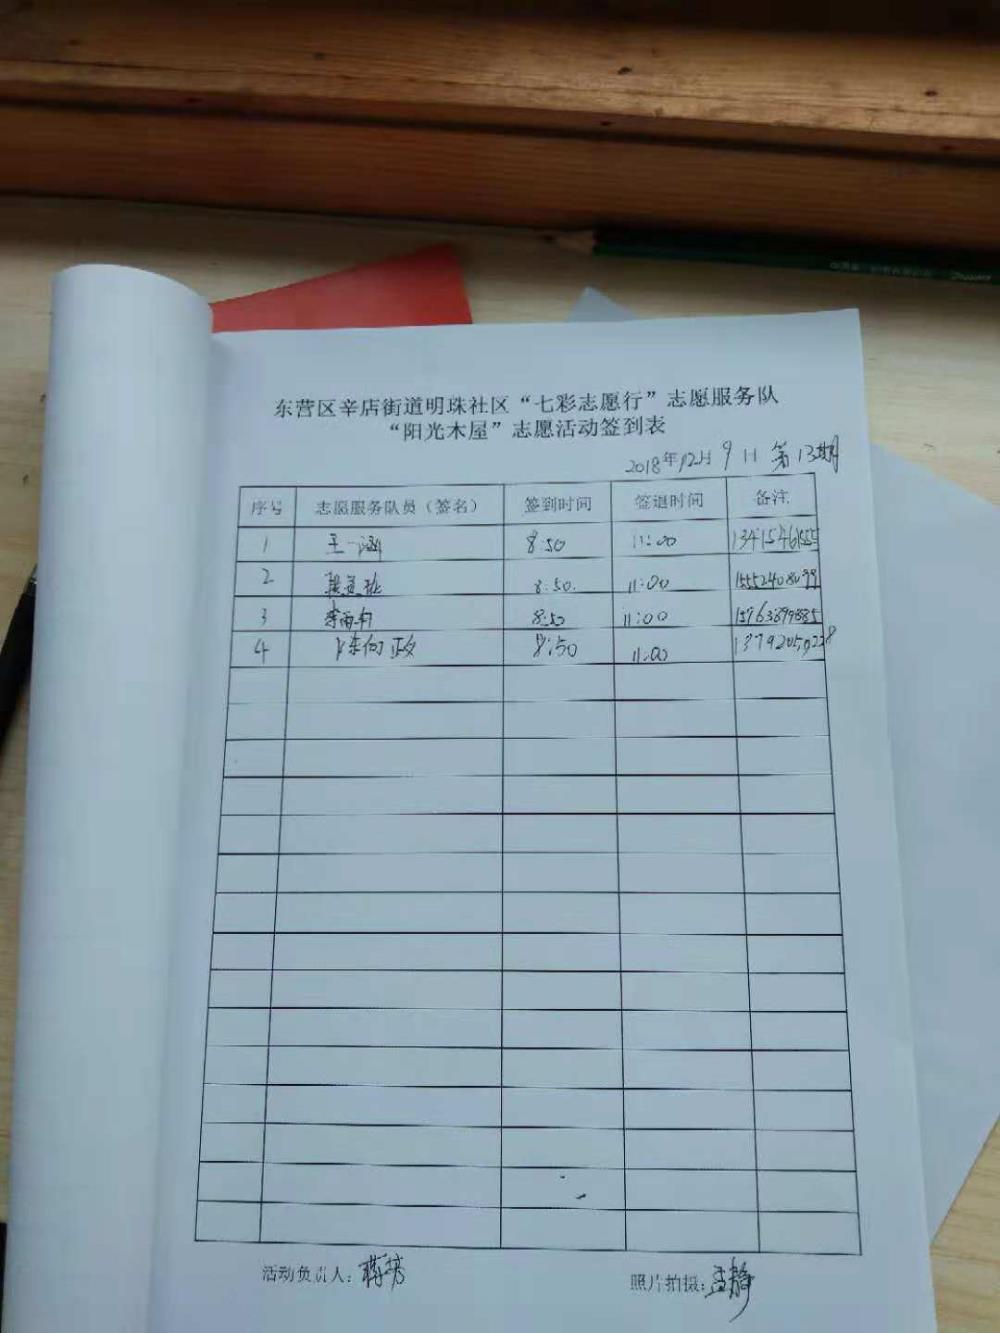 东营区辛店街道明珠社区“七彩志愿行”志愿服务队
“阳光木屋”志愿活动签到表
2018年12月9日 第13期
序号 志愿服务队员（签名） 签到时间 签退时间 备注
1 王一涵 8:50 11:00
2 8:50. 11:00 15552408099
3 李雨轩 8:50 11:00 15763899885
4 陈向政 8:50 11:00
活动负责人：蒋芳
照片拍摄：孟静